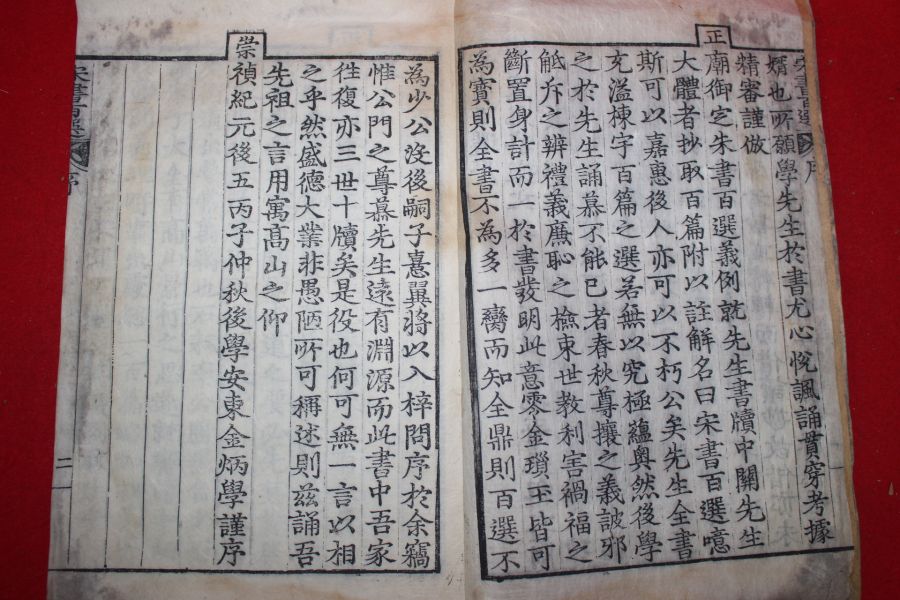 宋書百選 序
婿也所願學先生於書尤心悅諷誦貫穿考據
精審謹倣
正廟御定朱書百選義例就先生書牘中關先生
大體者抄取百篇附以註解名曰宋書百選噫
斯可以嘉惠後人亦可以不朽公矣先生全書
充溢棟宇百篇之選若無以究極蘊奧然後學
之於先生誦慕不能已者春秋尊攘之義詖邪
觝斥之辨禮義廉恥之檢束世教利害禍福之
斷置身計而一於書發明此意零金瑣玉皆可
為寶則全書不為多一臠而知全鼎則百選不
為少公沒後嗣子憙翼將以入梓問序於余竊
惟公門之尊慕先生遠有淵源而此書中吾家
徃復亦三世十牘矣是役也何可無一言以相
之乎然盛德大業非愚陋所可稱述則玆誦吾
先祖之言用寓高山之仰
崇禎紀元後五丙子仲秋後學安東金炳學謹序
宋書百選 序 二